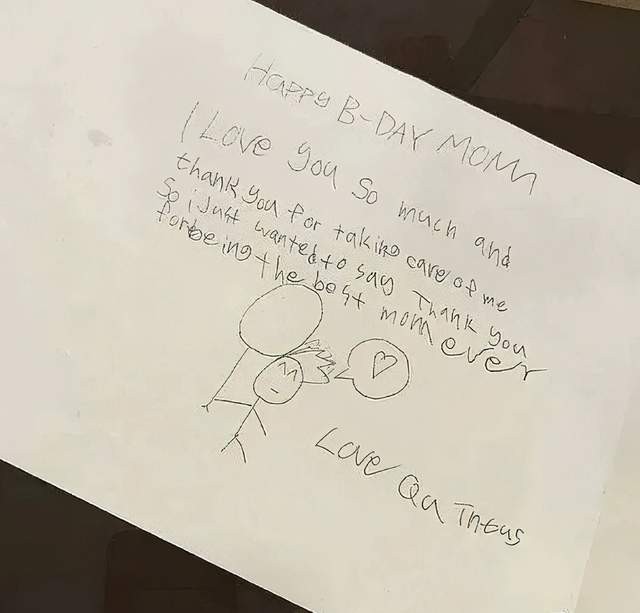 HAPPY B-DAY MOM
I LOVE you so much and
thank you for taking care of me
So i Just wanted to say Thank you
for being the best mom ever
Love Qu